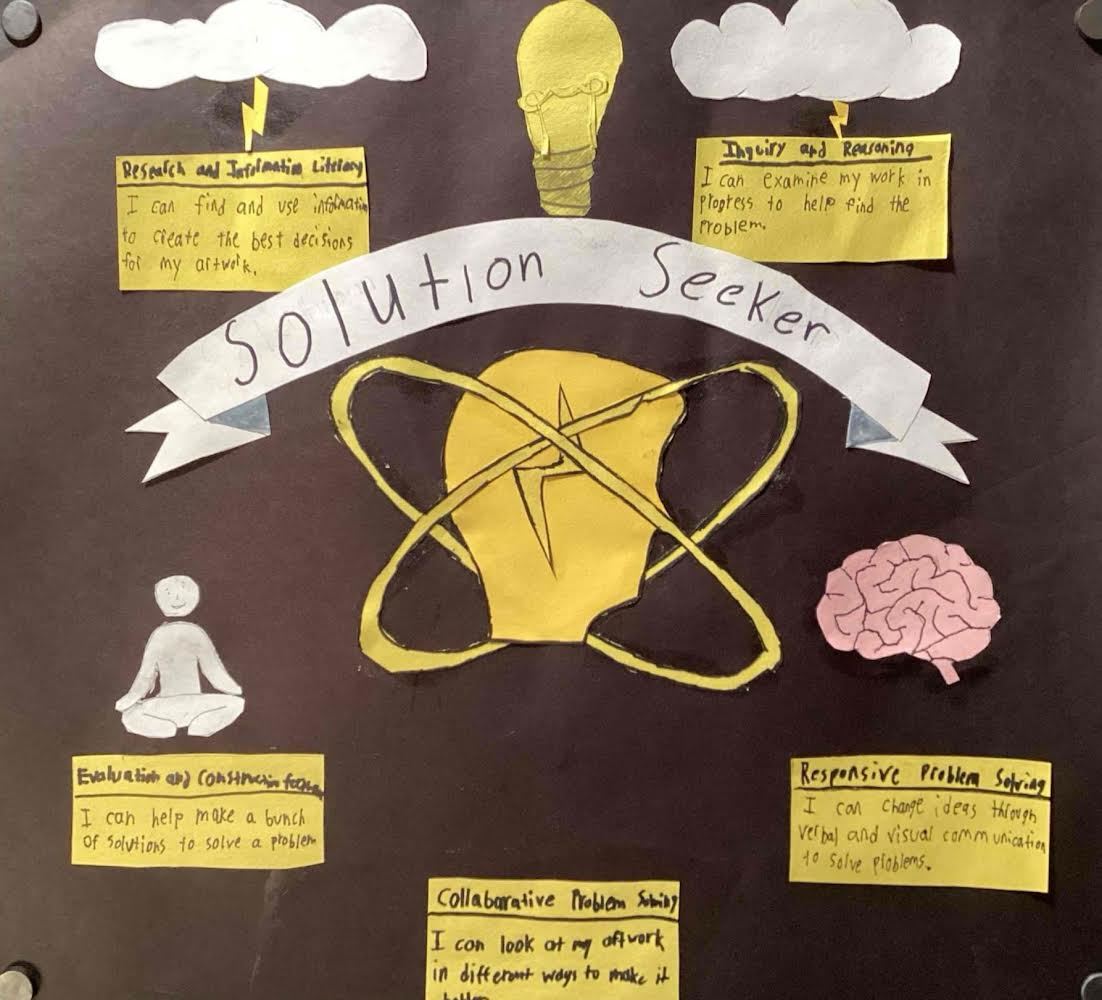 Research and Information Literacy
I can find and use information
to create the best decisions
for my artwork.
Inquiry and Reasoning
I can examine my work in
progress to help find the
problem.
Solution Seeker
Evaluation and
I can help make a bunch
of solutions to solve a problem
Responsive Problem Solving
I can change ideas through
verbal and visual communication
to solve problems.
Collaborative Problem Solving
I can look at my artwork
in different ways to make it
better.